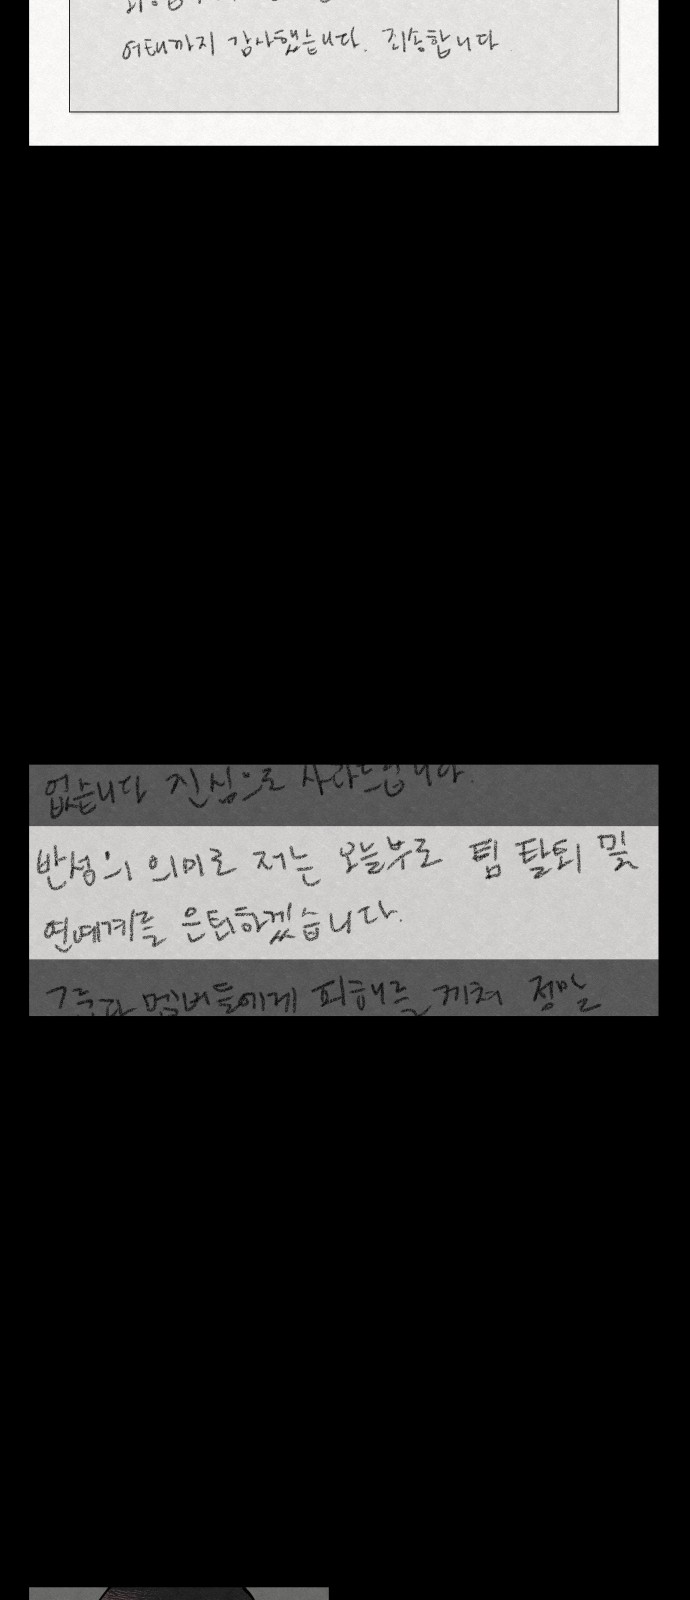 여태까지 감사했습니다. 죄송합니다
없습니다 진심으로 사과드립니다.
반성의 의미로 저는 오늘부로 팀 탈퇴 및
연예계를 은퇴하겠습니다.
멤버들에게 피해를 끼쳐 정말